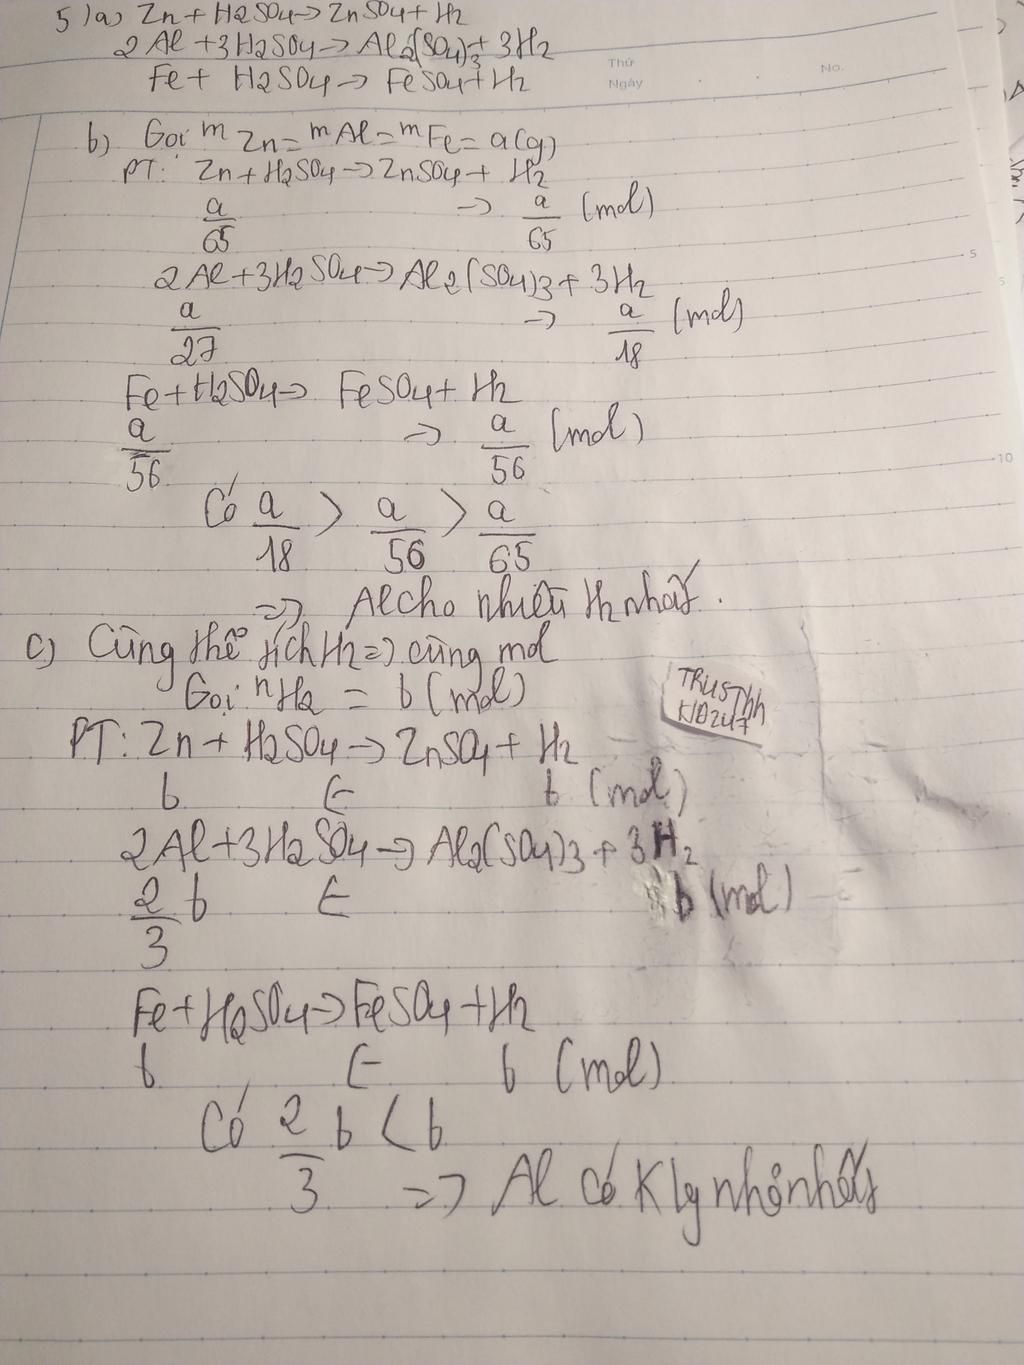 5)a) Zn + H2SO4 → ZnSO4 + H2
2Al + 3H2SO4 → Al2(SO4)3 + 3H2
Fe + H2SO4 → FeSO4 + H2
Thứ
Ngày
No.
b) Gọi mZn = mAl = mFe = a(g)
PT: Zn + H2SO4 → ZnSO4 + H2
a/65 → a/65 (mol)
2Al + 3H2SO4 → Al2(SO4)3 + 3H2
5
a/27 → a/18 (mol)
Fe + H2SO4 → FeSO4 + H2
a/56 → a/56 (mol)
10
Có a/18 > a/56 > a/65
=> Al cho nhiều H2 nhất.
c) Cùng thể tích H2 => cùng mol
Gọi nH2 = b (mol)
TRUSThh
KID247
PT: Zn + H2SO4 → ZnSO4 + H2
b ← b (mol)
2Al + 3H2SO4 → Al2(SO4)3 + 3H2
2/3 b ← b (mol)
Fe + H2SO4 → FeSO4 + H2
b ← b (mol)
Có 2/3 b < b
=> Al có Klg nhỏ nhất